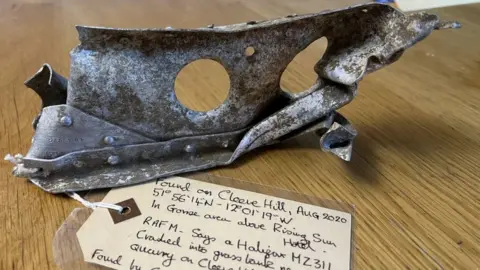 Found on Cleeve Hill, Aug 2020
51°56'14"N - 12°01'19"W
In Gorse area above Rising Sun
Hotel.
RAFM - Says a Halifax MZ311
Crashed into grass bank
Quarry on Cleeve Hill
Found by